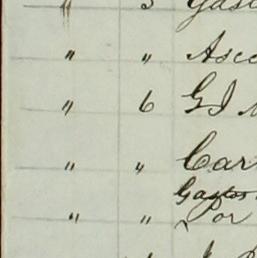 " 5 Gast
" " Asce
" 6 G I
" " Car
Gastos
" " Por